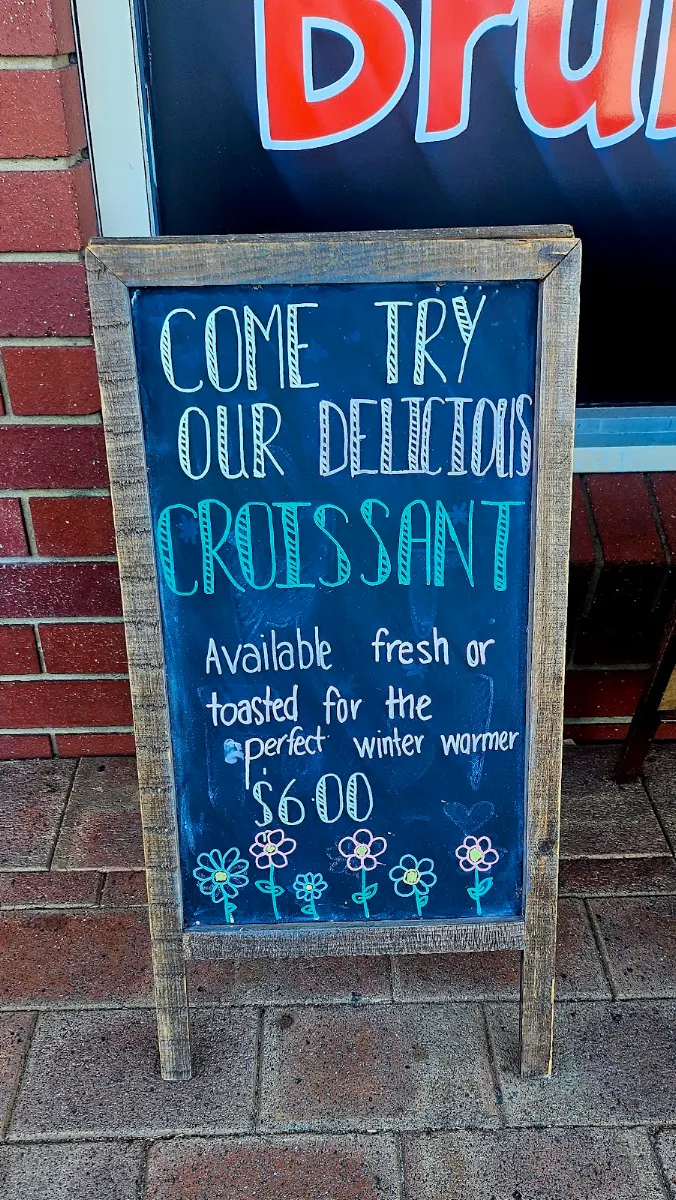 COME TRY
OUR DELICIOUS
CROISSANT
Available fresh or
toasted for the
perfect winter warmer
$600